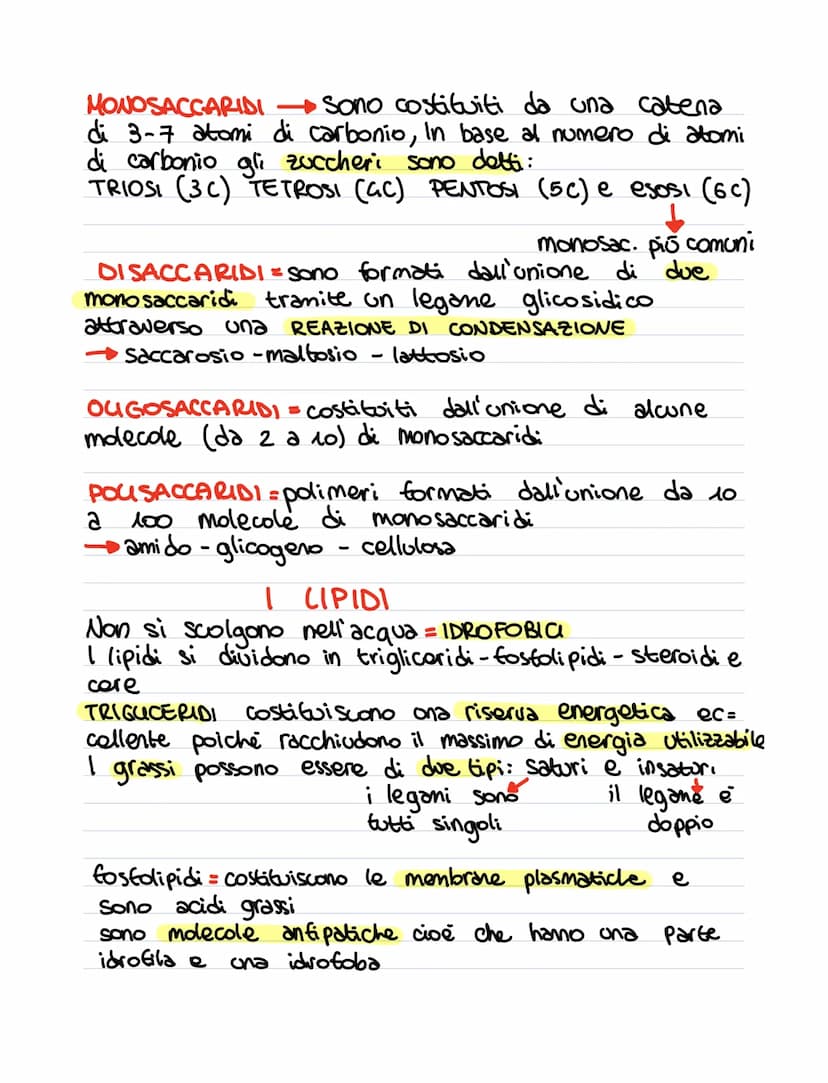 MONOSACCARIDI → sono costituiti da una catena
di 3-7 atomi di carbonio, In base al numero di atomi
di carbonio gli zuccheri sono detti:
TRIOSI (3C) TETROSI (4C) PENTOSI (5C) e esosi (6C)
monosac. più comuni
DISACCARIDI = sono formati dall'unione di due
monosaccaridi tramite un legame glicosidico
attraverso una REAZIONE DI CONDENSAZIONE
→ saccarosio - maltosio - lattosio
OLIGOSACCARIDI = costituiti dall'unione di alcune
molecole (da 2 a 10) di monosaccaridi
POLISACCARIDI = polimeri formati dall'unione da 10
a 100 molecole di monosaccaridi
→ amido - glicogeno - cellulosa
I LIPIDI
Non si sciolgono nell'acqua = IDROFOBICI
I lipidi si dividono in trigliceridi - fosfolipidi - steroidi e
cere
TRIGLICERIDI costituiscono una riserva energetica ec=
cellente poiché racchiudono il massimo di energia utilizzabile
I grassi possono essere di due tipi: saturi e insaturi
i legami sono il legame è
tutti singoli doppio
fosfolipidi = costituiscono le membrane plasmatiche e
sono acidi grassi
sono molecole anfipatiche cioè che hanno una parte
idrofila e una idrofoba